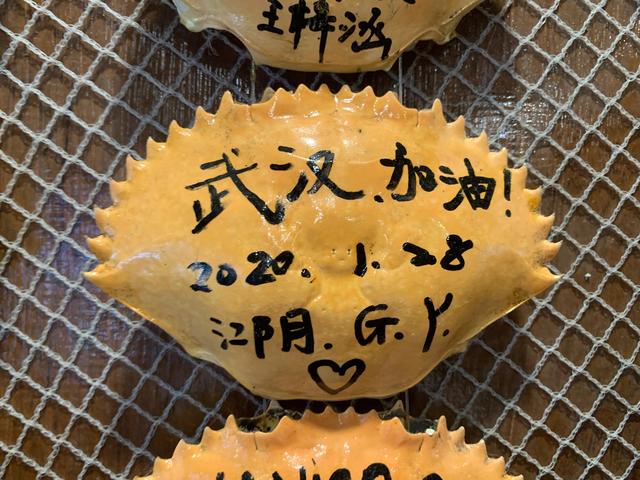 武汉.加油!
2020.1.28
江阴.G.Y.
♡